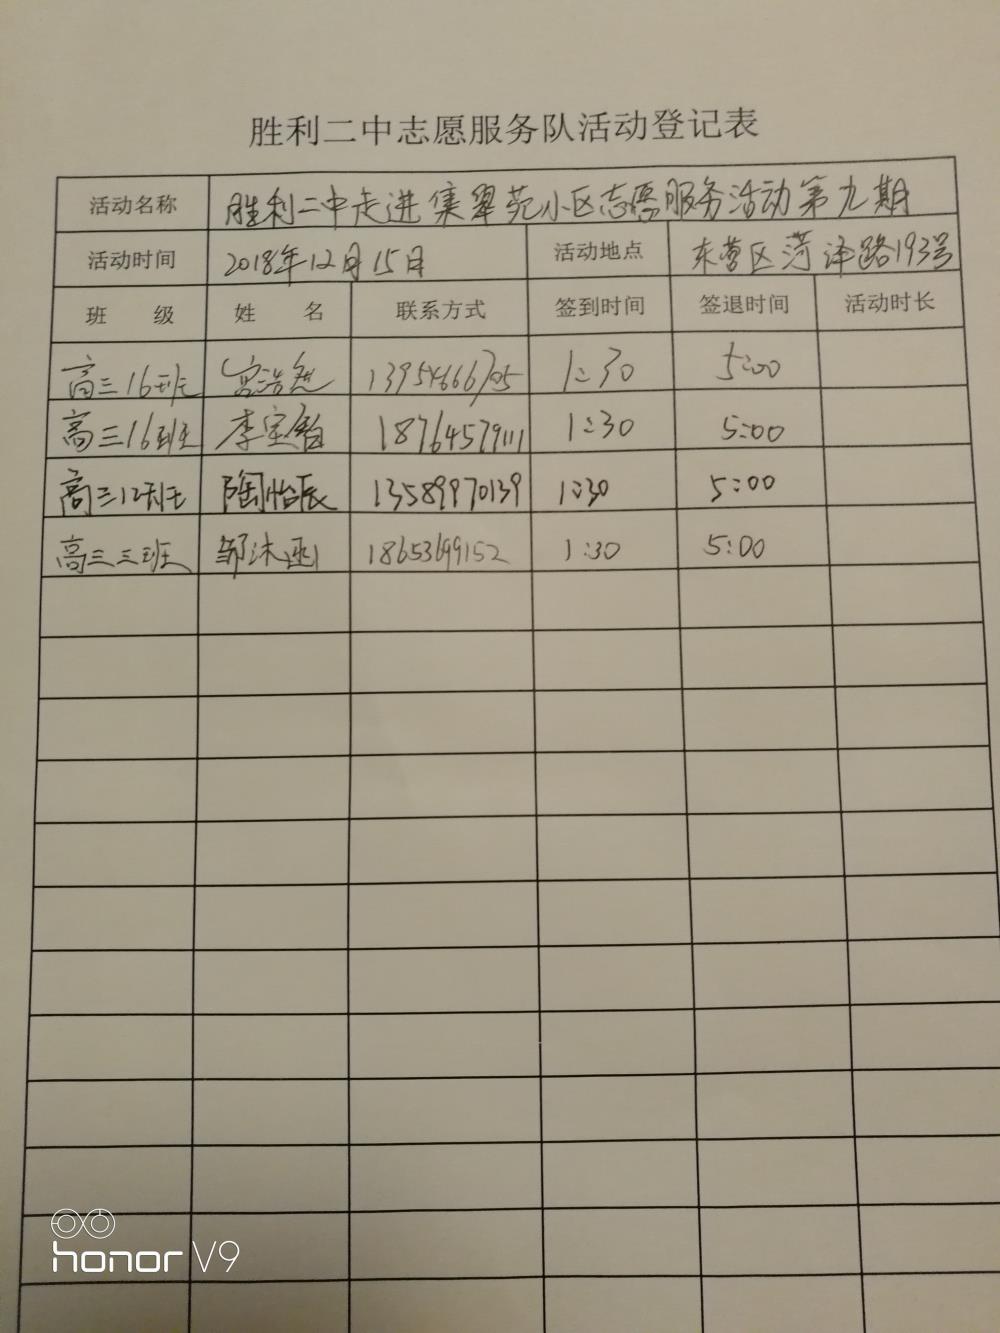 胜利二中志愿服务队活动登记表
活动名称 胜利二中走进集翠苑小区志愿服务活动第九期
活动时间 2018年12月15日 活动地点 东营区菏泽路193号
班 级 姓 名 联系方式 签到时间 签退时间 活动时长
高三16班 宫浩 13954666705 1:30 5:00
高三16班 李宝 18764579111 1:30 5:00
高三12班 陶怡辰 13589970139 1:30 5:00
高三三班 邹沐函 18653699152 1:30 5:00
honor V9